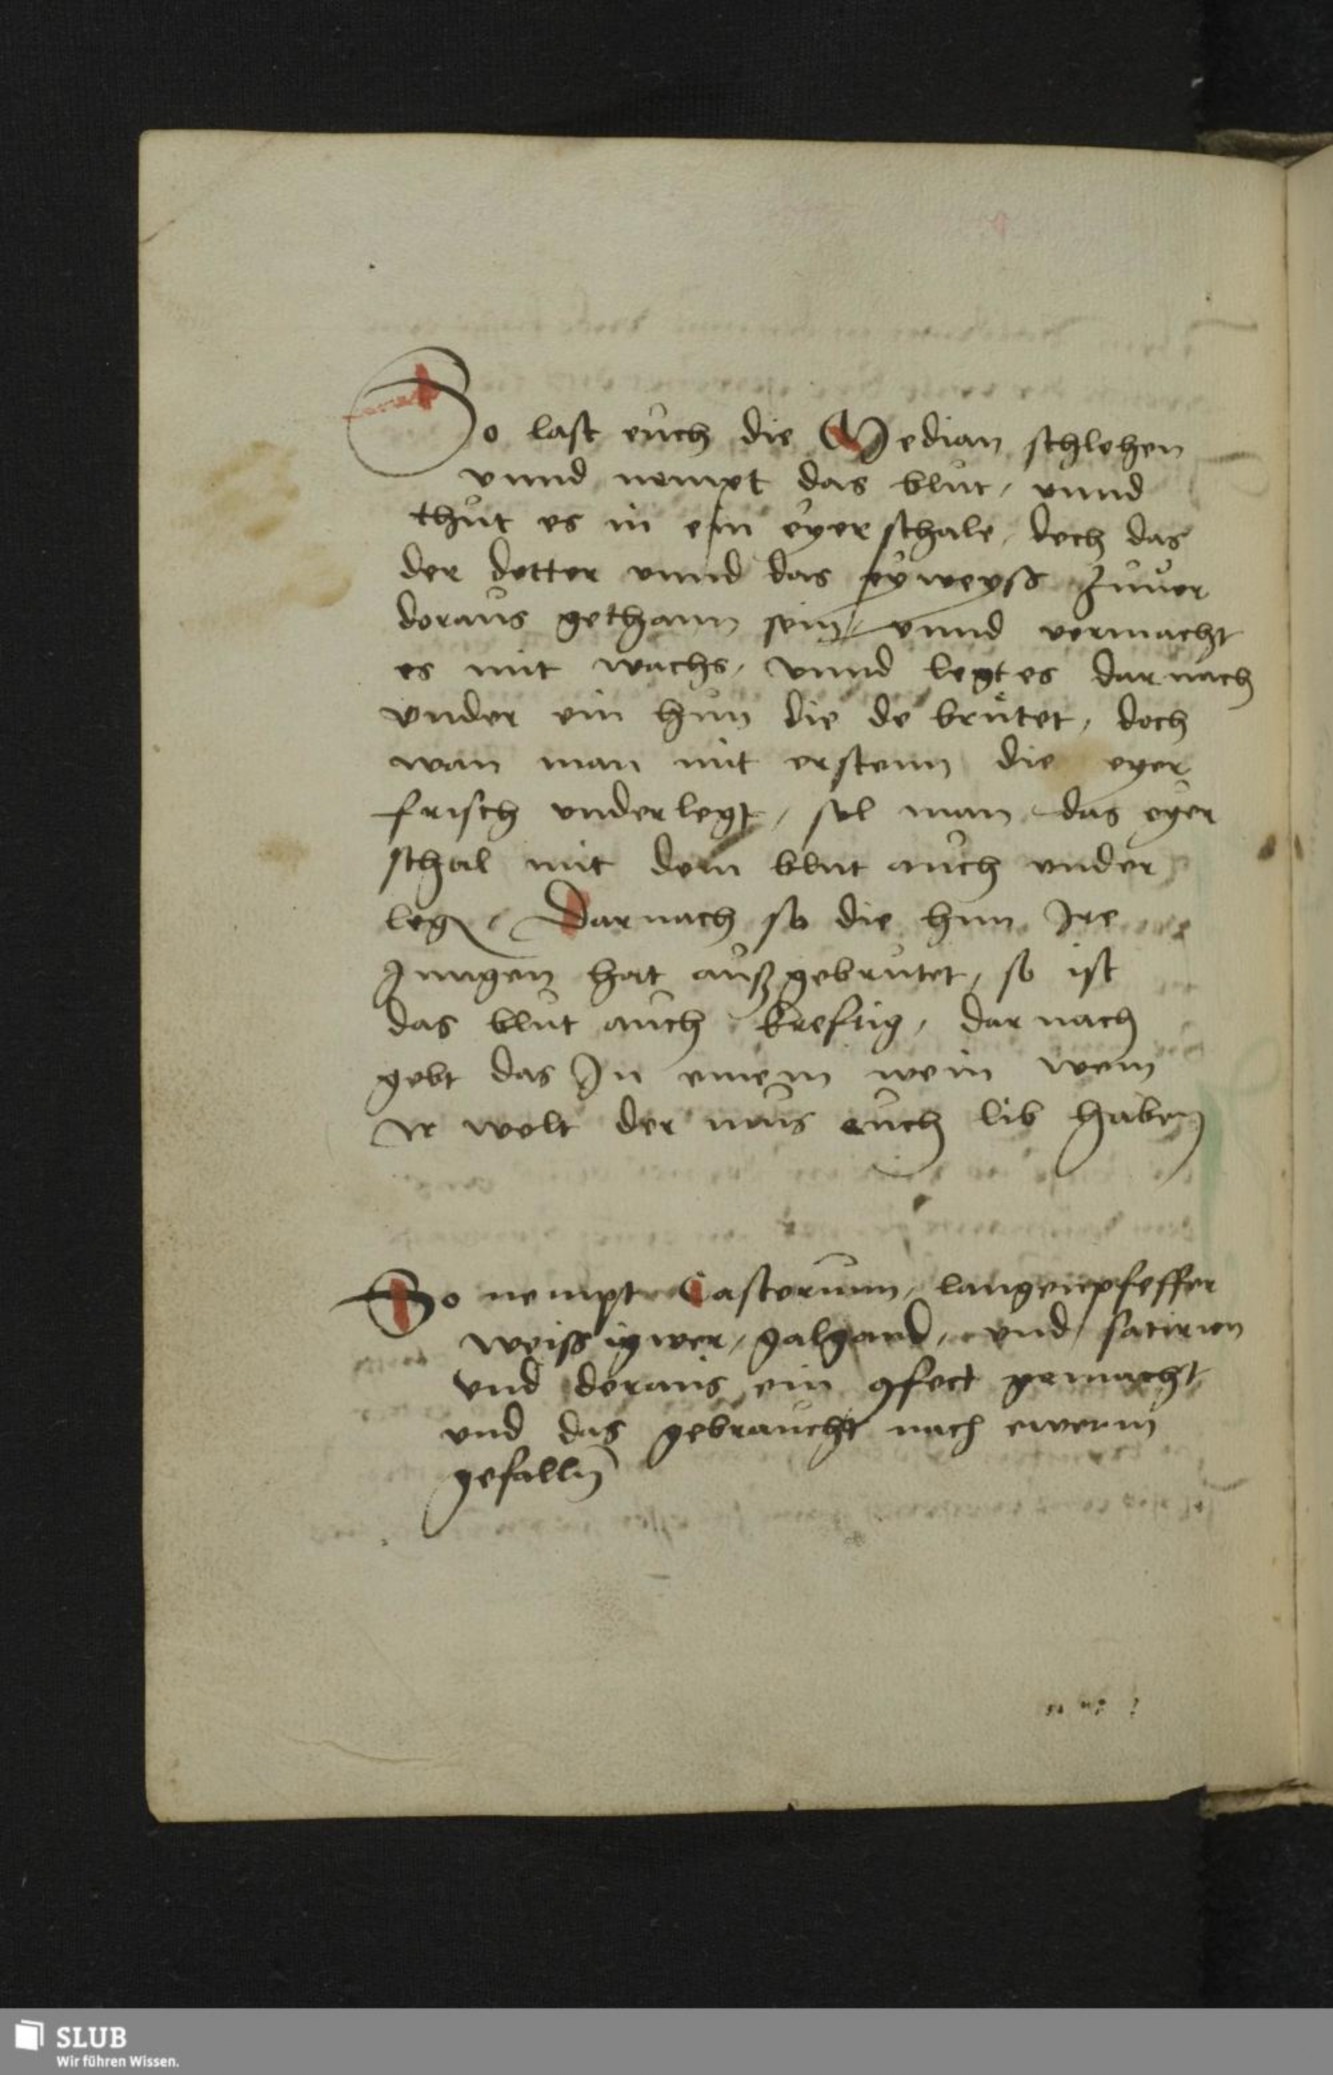 So last euch die Median schlehen
vnnd nempt das blut, vnnd
thut es in ein eyerschale, doch das
der dotter vnnd das eyweyss zuuor
doraus gethann sein, vnnd vermacht
es mit wachs, vnnd legt es darnach
vnder ein hun die do brutet, doch
wan man mit erstenn die eyer
frisch vnderlegt, sol man das eyer
schal mit dem blut auch vnder
legen, Darnach so die hun Jre
Jungen hat außgebrutet, so ist
das blut auch kreftig, darnach
gebt das Jn einem wein wem
Jr wolt der mus euch lib haben
So nempt Castorium, langenpfeffer
weiss igwer, galgand, vnd satirion
vnd doraus ein 9fect gemacht
vnd das gebraucht nach ewerm
gefallen
SLUB
Wir führen Wissen.